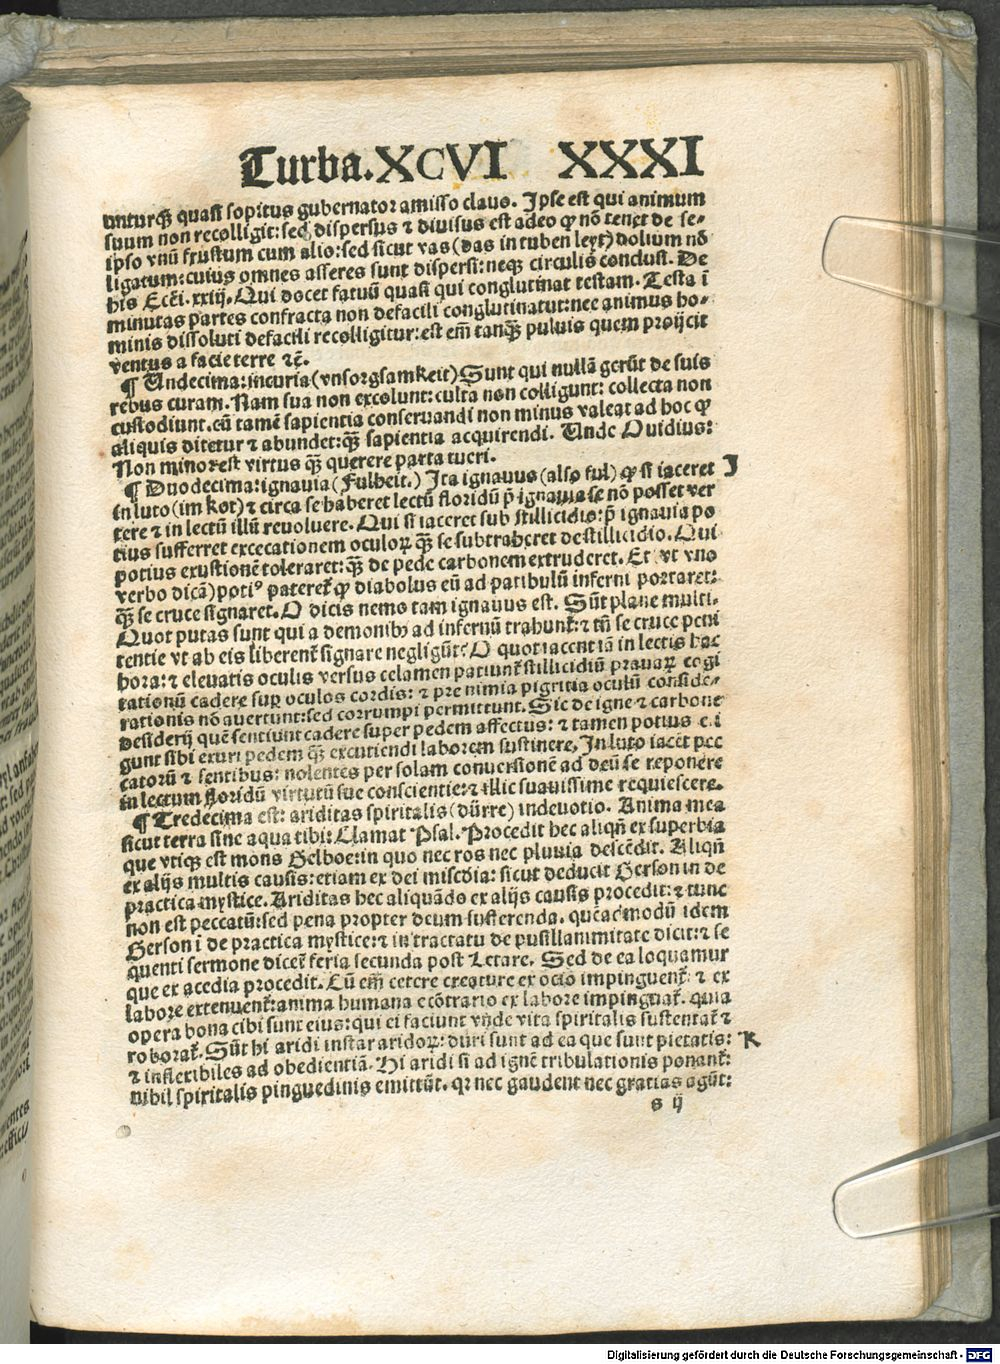 Turba.XCVI XXXI
vnturqꝫ quasi sopitus gubernator amisso clauo. Ipse est qui animum
suum non recolligit: sed dispersus ⁊ diuisus est adeo ꝙ nō tenet de se-
ipso vnū frustum cum alio: sed sicut vas (das in tuben leyt) dolium nō
ligatum: cuius omnes asseres sunt dispersi: neqꝫ circulis conclusi. De
his Eccī. xxij. Qui docet fatuū quasi qui conglutinat testam. Testa ī
minutas partes confracta non defacili conglutinatur: nec animus ho-
minis dissoluti defacili recolligitur: est em̄ tanqꝫ̄ puluis quem proijcit
ventus a facie terre ⁊c̄.
¶ Undecima: incuria (vnsorgsamkeit) Sunt qui nullā gerūt de suis
rebus curam. Nam sua non excolunt: culta non colligunt: collecta non
custodiunt. cū tamē sapientia conseruandi non minus valeat ad hoc ꝙ
aliquis ditetur ⁊ abundet: qꝫ̄ sapientia acquirendi. Unde Ouidius:
Non minor est virtus qꝫ̄ querere parta tueri.
¶ Duodecima: ignauia (Fulheit.) Ita ignauus (also ful) ꝙ si iaceret I
in luto (im kot) ⁊ circa se haberet lectū floridū p̄ ignauia se nō posset ver
tere ⁊ in lectū illū reuoluere. Qui si iaceret sub stillicidio: p̄ ignauia po
tius sufferret excecationem oculoꝝ qꝫ̄ se subtraheret de stillicidio. Qui
potius exustionē toleraret: qꝫ̄ de pede carbonem extruderet. Et vt vno
verbo dicā) poti⁹ pateret̄ ꝙ diabolus eū ad patibulū inferni portaret:
qꝫ̄ se cruce signaret. O dicis nemo tam ignauus est. Sūt plane multi.
Quot putas sunt qui a demonibꝫ ad infernū trahunt̄: ⁊ tū se cruce peni
tentie vt ab eis liberent̄ signare negligūt? O quot iacent iā in lectis hac
hora: ⁊ eleuatis oculis versus celamen patiunt̄ stillicidiū prauaꝝ cogi
tationū cadere suꝑ oculos cordis: ⁊ pre nimia pigritia oculū conside-
rationis nō auertunt: sed corrumpi permittunt. Sic de igne ⁊ carbone
desiderij quē sentiunt cadere super pedem affectus: ⁊ tamen potius eli
gunt sibi exuri pedem qꝫ̄ excutiendi laborem sustinere. In luto iacēt pec
catorū ⁊ sentibus: nolentes per solam conuersionē ad deū se reponere
in lectum floridū virtutū sue conscientie: ⁊ illic suauissime requiescere.
¶ Tredecima est: ariditas spiritalis (dürre) indeuotio. Anima mea
sicut terra sine aqua tibi: Clamat Psal. Procedit hec aliqn̄ ex superbia
que vtiqꝫ est mons Gelboe: in quo nec ros nec pluuia descēdit. Aliqn̄
ex alijs multis causis: etiam ex dei miscdia: sicut deducit Gerson in de
practica mystice. Ariditas hec aliquādo ex alijs causis procedit: ⁊ tunc
non est peccatū: sed pena propter deum sufferenda. queadmodū idem
Gerson ī de practica mystice: ⁊ in tractatu de pusillanimitate dicit: ⁊ se
quenti sermone dicet̄ feria secunda post Letare. Sed de ea loquamur
que ex acedia procedit. Cū em̄ cetere creature ex ocio impinguent̄: ⁊ ex
labore extenuent̄: anima humana ecōtrario ex labore impinguat̄. quia
opera bona cibi sunt eius: qui ei faciunt vnde vita spiritalis sustentat̄ ⁊
roborat̄. Sūt hi aridi instar aridoꝝ: duri sunt ad ea que sunt pietatis: K
⁊ inflexibiles ad obedientiā. Hi aridi si ad ignē tribulationis ponant̄:
nihil spiritalis pinguedinis emittūt. qꝛ nec gaudent nec gratias agūt:
s ij
Digitalisierung gefördert durch die Deutsche Forschungsgemeinschaft - DFG